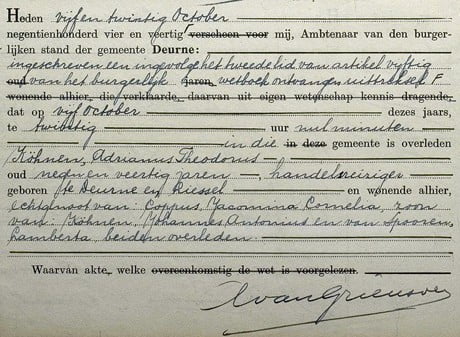 Heden vijf en twintig October
negentienhonderd vier en veertig verscheen voor mij, Ambtenaar van den burger-
lijken stand der gemeente Deurne:
ingeschreven een ingevolge het tweede lid van artikel vijftig
oud van het burgerlijk jaren, wetboek ontvangen uittreksel F
wonende alhier, die verklaarde, daarvan uit eigen wetenschap kennis dragende,
dat op vijf October dezes jaars,
te twintig uur nul minuten
in die in deze gemeente is overleden
Köhnen, Adrianus Theodorus
oud negen en veertig jaren, handelsreiziger
geboren te Deurne en Liessel en wonende alhier,
echtgenoot van: Coppus, Jacomina Cornelia, zoon
van: Köhnen, Johannes Antonius en van Spoosen,
Lamberta, beiden overleden
Waarvan akte, welke overeenkomstig de wet is voorgelezen.